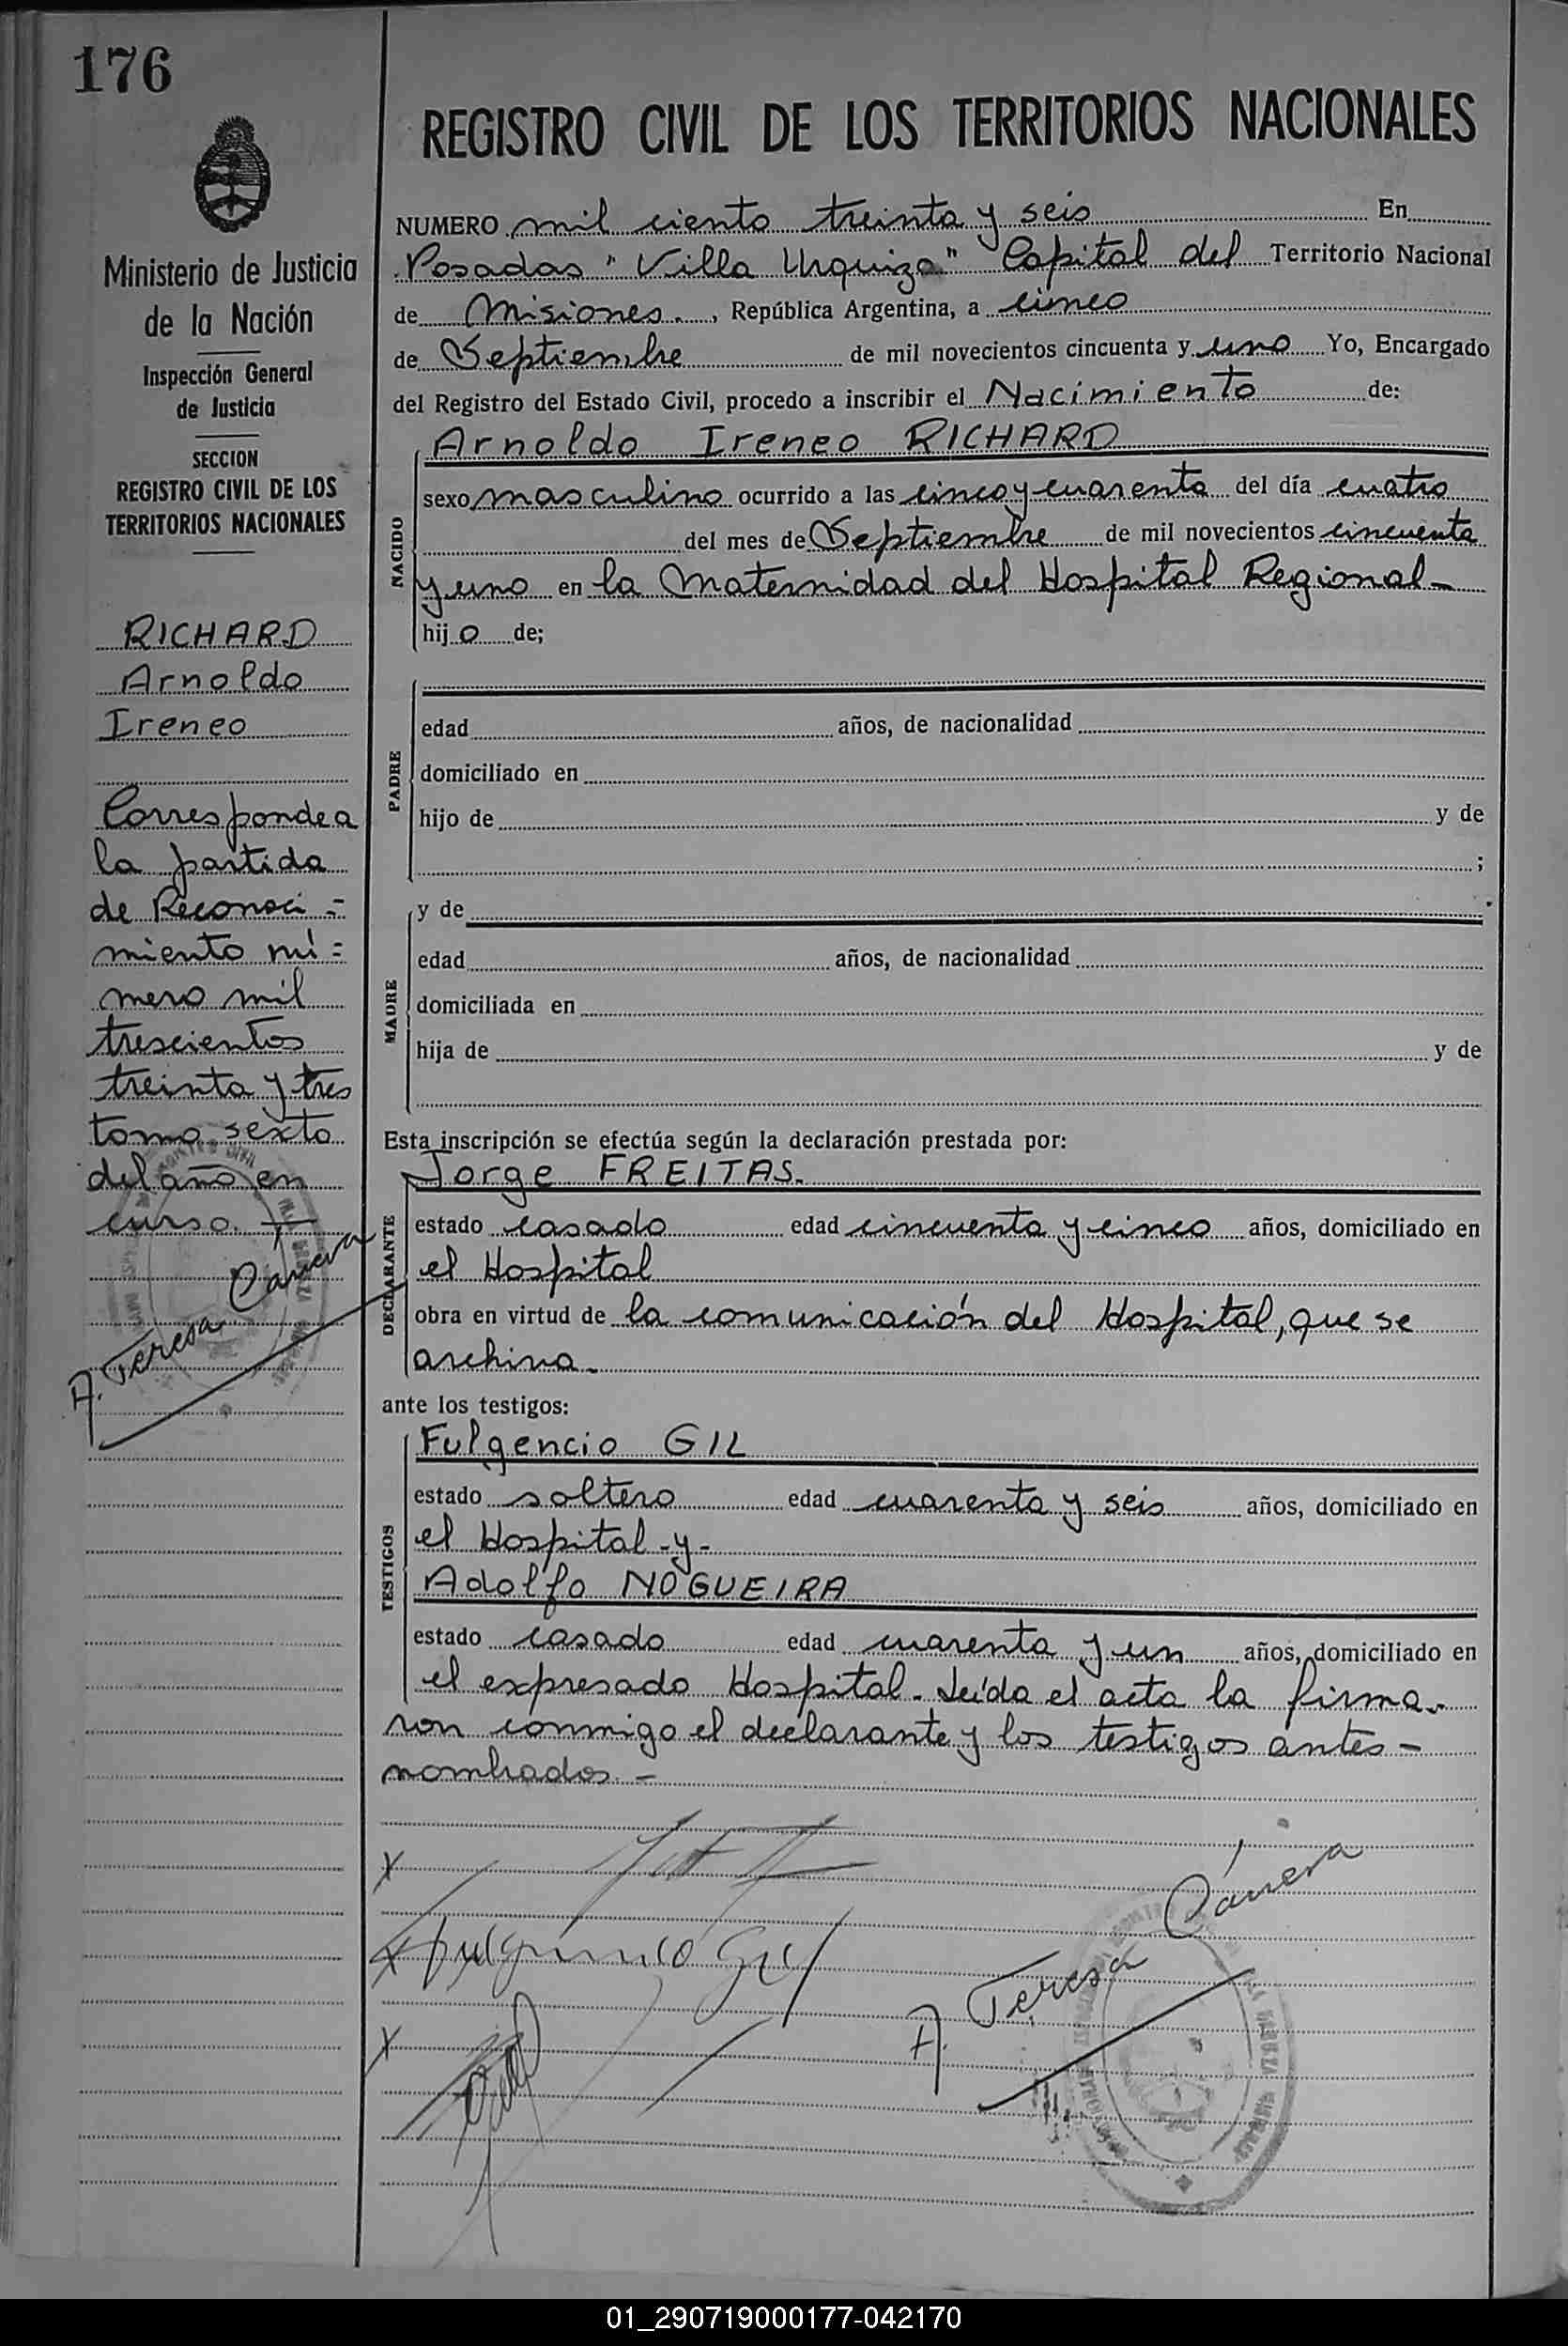 176
Ministerio de Justicia
de la Nación
Inspección General
de Justicia
SECCION
REGISTRO CIVIL DE LOS
TERRITORIOS NACIONALES
RICHARD
Arnoldo
Ireneo
Corresponde a
la partida
de Reconoci -
miento nú =
mero mil
trescientos
treinta y tres
tomo sexto
del año en
curso.
A. Teresa
REGISTRO CIVIL DE LOS TERRITORIOS NACIONALES
NUMERO mil ciento treinta y seis En
Posadas "Villa Urquiza" Capital del Territorio Nacional
de Misiones., República Argentina, a cinco
de Septiembre de mil novecientos cincuenta y uno Yo, Encargado
del Registro del Estado Civil, procedo a inscribir el Nacimiento de:
NACIDO
Arnoldo Ireneo RICHARD
sexo masculino ocurrido a las cinco y cuarenta del día cuatro
del mes de Septiembre de mil novecientos cincuenta
y uno en la Maternidad del Hospital Regional -
hijo de;
PADRE
edad años, de nacionalidad
domiciliado en
hijo de y de
;
MADRE
y de
edad años, de nacionalidad
domiciliada en
hija de y de
Esta inscripción se efectúa según la declaración prestada por:
DECLARANTE
Jorge FREITAS.
estado casado edad cincuenta y cinco años, domiciliado en
el Hospital
obra en virtud de la comunicación del Hospital, que se
archiva.
ante los testigos:
TESTIGOS
Fulgencio GIL
estado soltero edad cuarenta y seis años, domiciliado en
el Hospital -y-
Adolfo NOGUEIRA
estado casado edad cuarenta y un años, domiciliado en
el expresado Hospital. Leída el acta la firma-
ron conmigo el declarante y los testigos antes -
nombrados. -
x
x Fulgencio Gil
x
A. Teresa
01_290719000177-042170